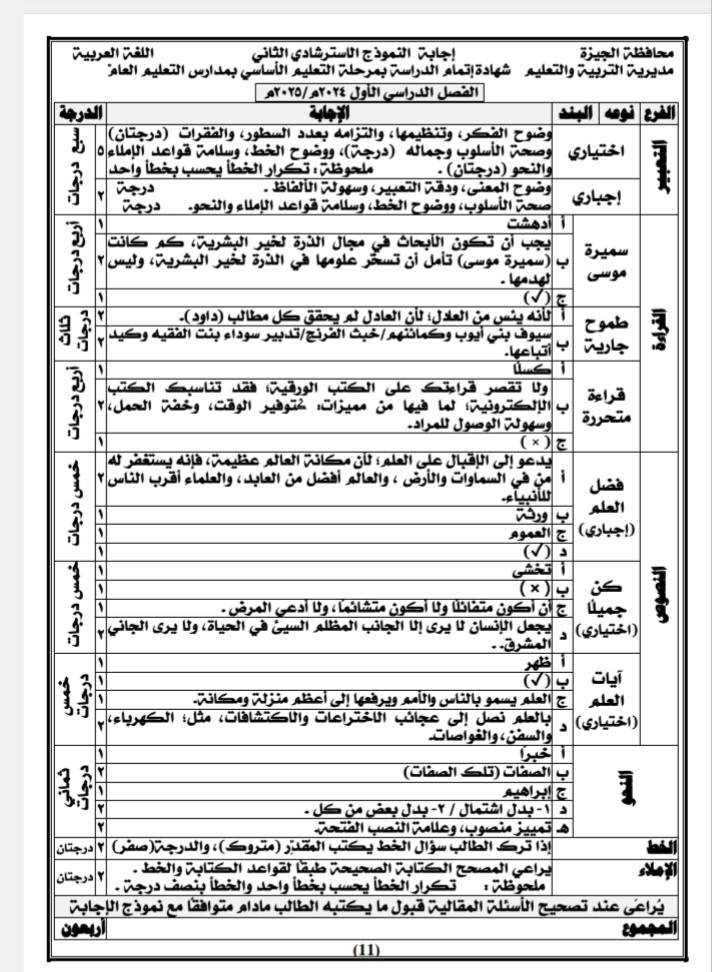 محافظة الجيزة إجابة النموذج الاسترشادي الثاني اللغة العربية
مديرية التربية والتعليم شهادة إتمام الدراسة بمرحلة التعليم الأساسي بمدارس التعليم العام
الفصل الدراسي الأول ٢٠٢٤م/٢٠٢٥م
الفرع نوعه البند الإجابة الدرجة
التعبير
اختياري
وضوح الفكر، وتنظيمها، والتزامه بعدد السطور، والفقرات (درجتان)
وصحة الأسلوب وجماله (درجة)، ووضوح الخط، وسلامة قواعد الإملاء
والنحو (درجتان). ملحوظة: تكرار الخطأ يحسب بخطأ واحد
٥
إجباري
وضوح المعنى، ودقة التعبير، وسهولة الألفاظ. درجة
صحة الأسلوب، ووضوح الخط، وسلامة قواعد الإملاء والنحو. درجة
٢
سبع درجات
القراءة
سميرة موسى
أ أدهشت ١
ب يجب أن تكون الأبحاث في مجال الذرة لخير البشرية، كم كانت
(سميرة موسى) تأمل أن تسخر علومها في الذرة لخير البشرية، وليس
لهدمها. ٢
ج (√) ١
أربع درجات
طموح جارية
أ لأنه يئس من العادل؛ لأن العادل لم يحقق كل مطالب (داود). ٢
ب سيوف بني أيوب وكمائنهم/خبث الفرنج/تدبير سوداء بنت الفقيه وكيد
أتباعها. ٢
ثلاث درجات
قراءة متحررة
أ كسلًا ١
ب ولا تقصر قراءتك على الكتب الورقية؛ فقد تناسبك الكتب
الإلكترونية؛ لما فيها من مميزات: كتوفير الوقت، وخفة الحمل،
وسهولة الوصول للمراد. ٢
ج (×) ١
أربع درجات
النصوص
فضل العلم (إجباري)
أ يدعو إلى الإقبال على العلم؛ لأن مكانة العالم عظيمة، فإنه يستغفر له
من في السماوات والأرض، والعالم أفضل من العابد، والعلماء أقرب الناس
للأنبياء. ٢
ب ورثة ١
ج العموم ١
د (√) ١
خمس درجات
كن جميلًا (اختياري)
أ تخشى ١
ب (×) ١
ج أن أكون متفائلًا ولا أكون متشائمًا، ولا أدعي المرض. ١
د يجعل الإنسان لا يرى إلا الجانب المظلم السيئ في الحياة، ولا يرى الجاني
المشرق.. ٢
خمس درجات
آيات العلم (اختياري)
أ ظهر ١
ب (√) ١
ج العلم يسمو بالناس والأمم ويرفعها إلى أعظم منزلة ومكانة. ١
د بالعلم نصل إلى عجائب الاختراعات والاكتشافات، مثل؛ الكهرباء،
والسفن، والغواصات. ٢
خمس درجات
النحو
أ خبرًا ١
ب الصفات (تلك الصفات) ٢
ج إبراهيم ١
د ١- بدل اشتمال / ٢- بدل بعض من كل. ٢
هـ تمييز منصوب، وعلامة النصب الفتحة. ٢
ثماني درجات
الخط إذا ترك الطالب سؤال الخط يكتب المقدّر (متروك)، والدرجة(صفر) ٢ درجتان
الإملاء يراعي المصحح الكتابة الصحيحة طبقًا لقواعد الكتابة والخط.
ملحوظة: تكرار الخطأ يحسب بخطأ واحد والخطأ بنصف درجة. ٢ درجتان
يُراعَى عند تصحيح الأسئلة المقالية قبول ما يكتبه الطالب مادام متوافقًا مع نموذج الإجابة
المجموع أربعون
(11)